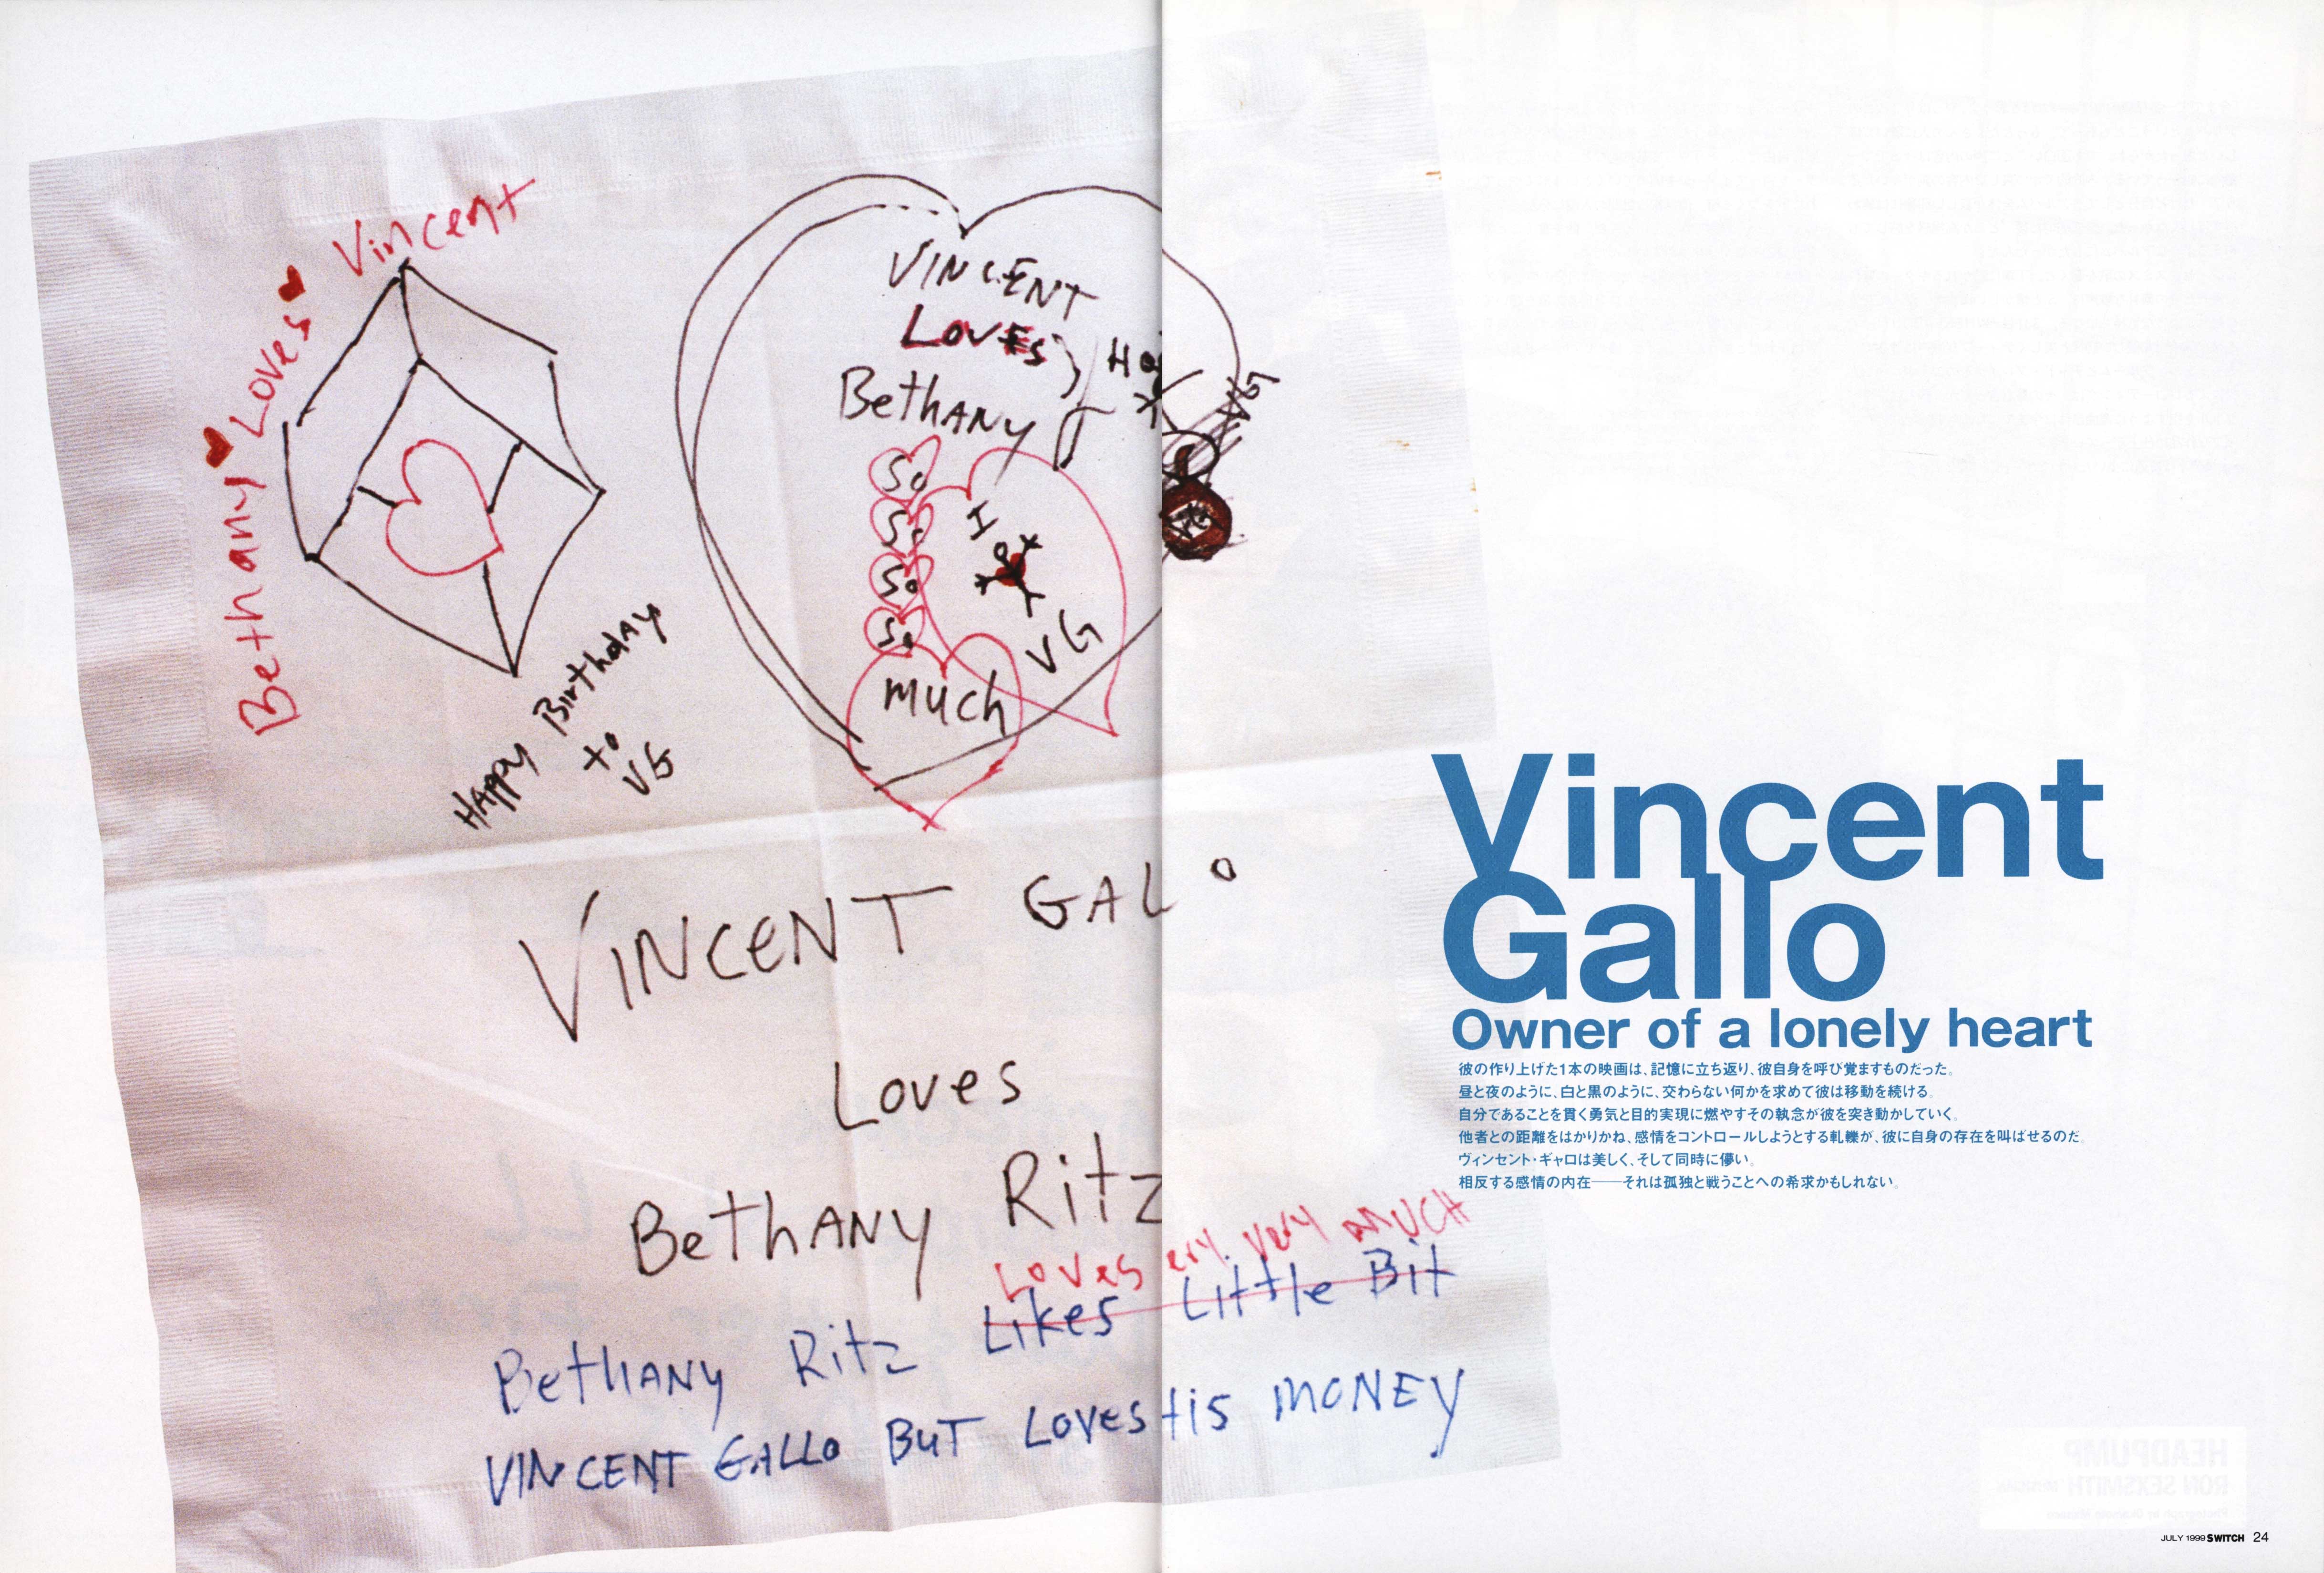 Bethany Loves Vincent
Happy Birthday
to
VG
VINCENT
LOVES
Bethany
So
So
So
So
much
I
VG
VG
VINCENT GALO
Loves
Bethany Ritz
Loves ery very MUCH
Bethany Ritz Likes Little Bit
VINCENT GALLO BUT LOVES His MONEY
Vincent
Gallo
Owner of a lonely heart
彼の作り上げた1本の映画は、記憶に立ち返り、彼自身を呼び覚ますものだった。
昼と夜のように、白と黒のように、交わらない何かを求めて彼は移動を続ける。
自分であることを貫く勇気と目的実現に燃やすその執念が彼を突き動かしていく。
他者との距離をはかりかね、感情をコントロールしようとする軋轢が、彼に自身の存在を叫ばせるのだ。
ヴィンセント・ギャロは美しく、そして同時に儚い。
相反する感情の内在——それは孤独と戦うことへの希求かもしれない。
JULY 1999 SWITCH 24